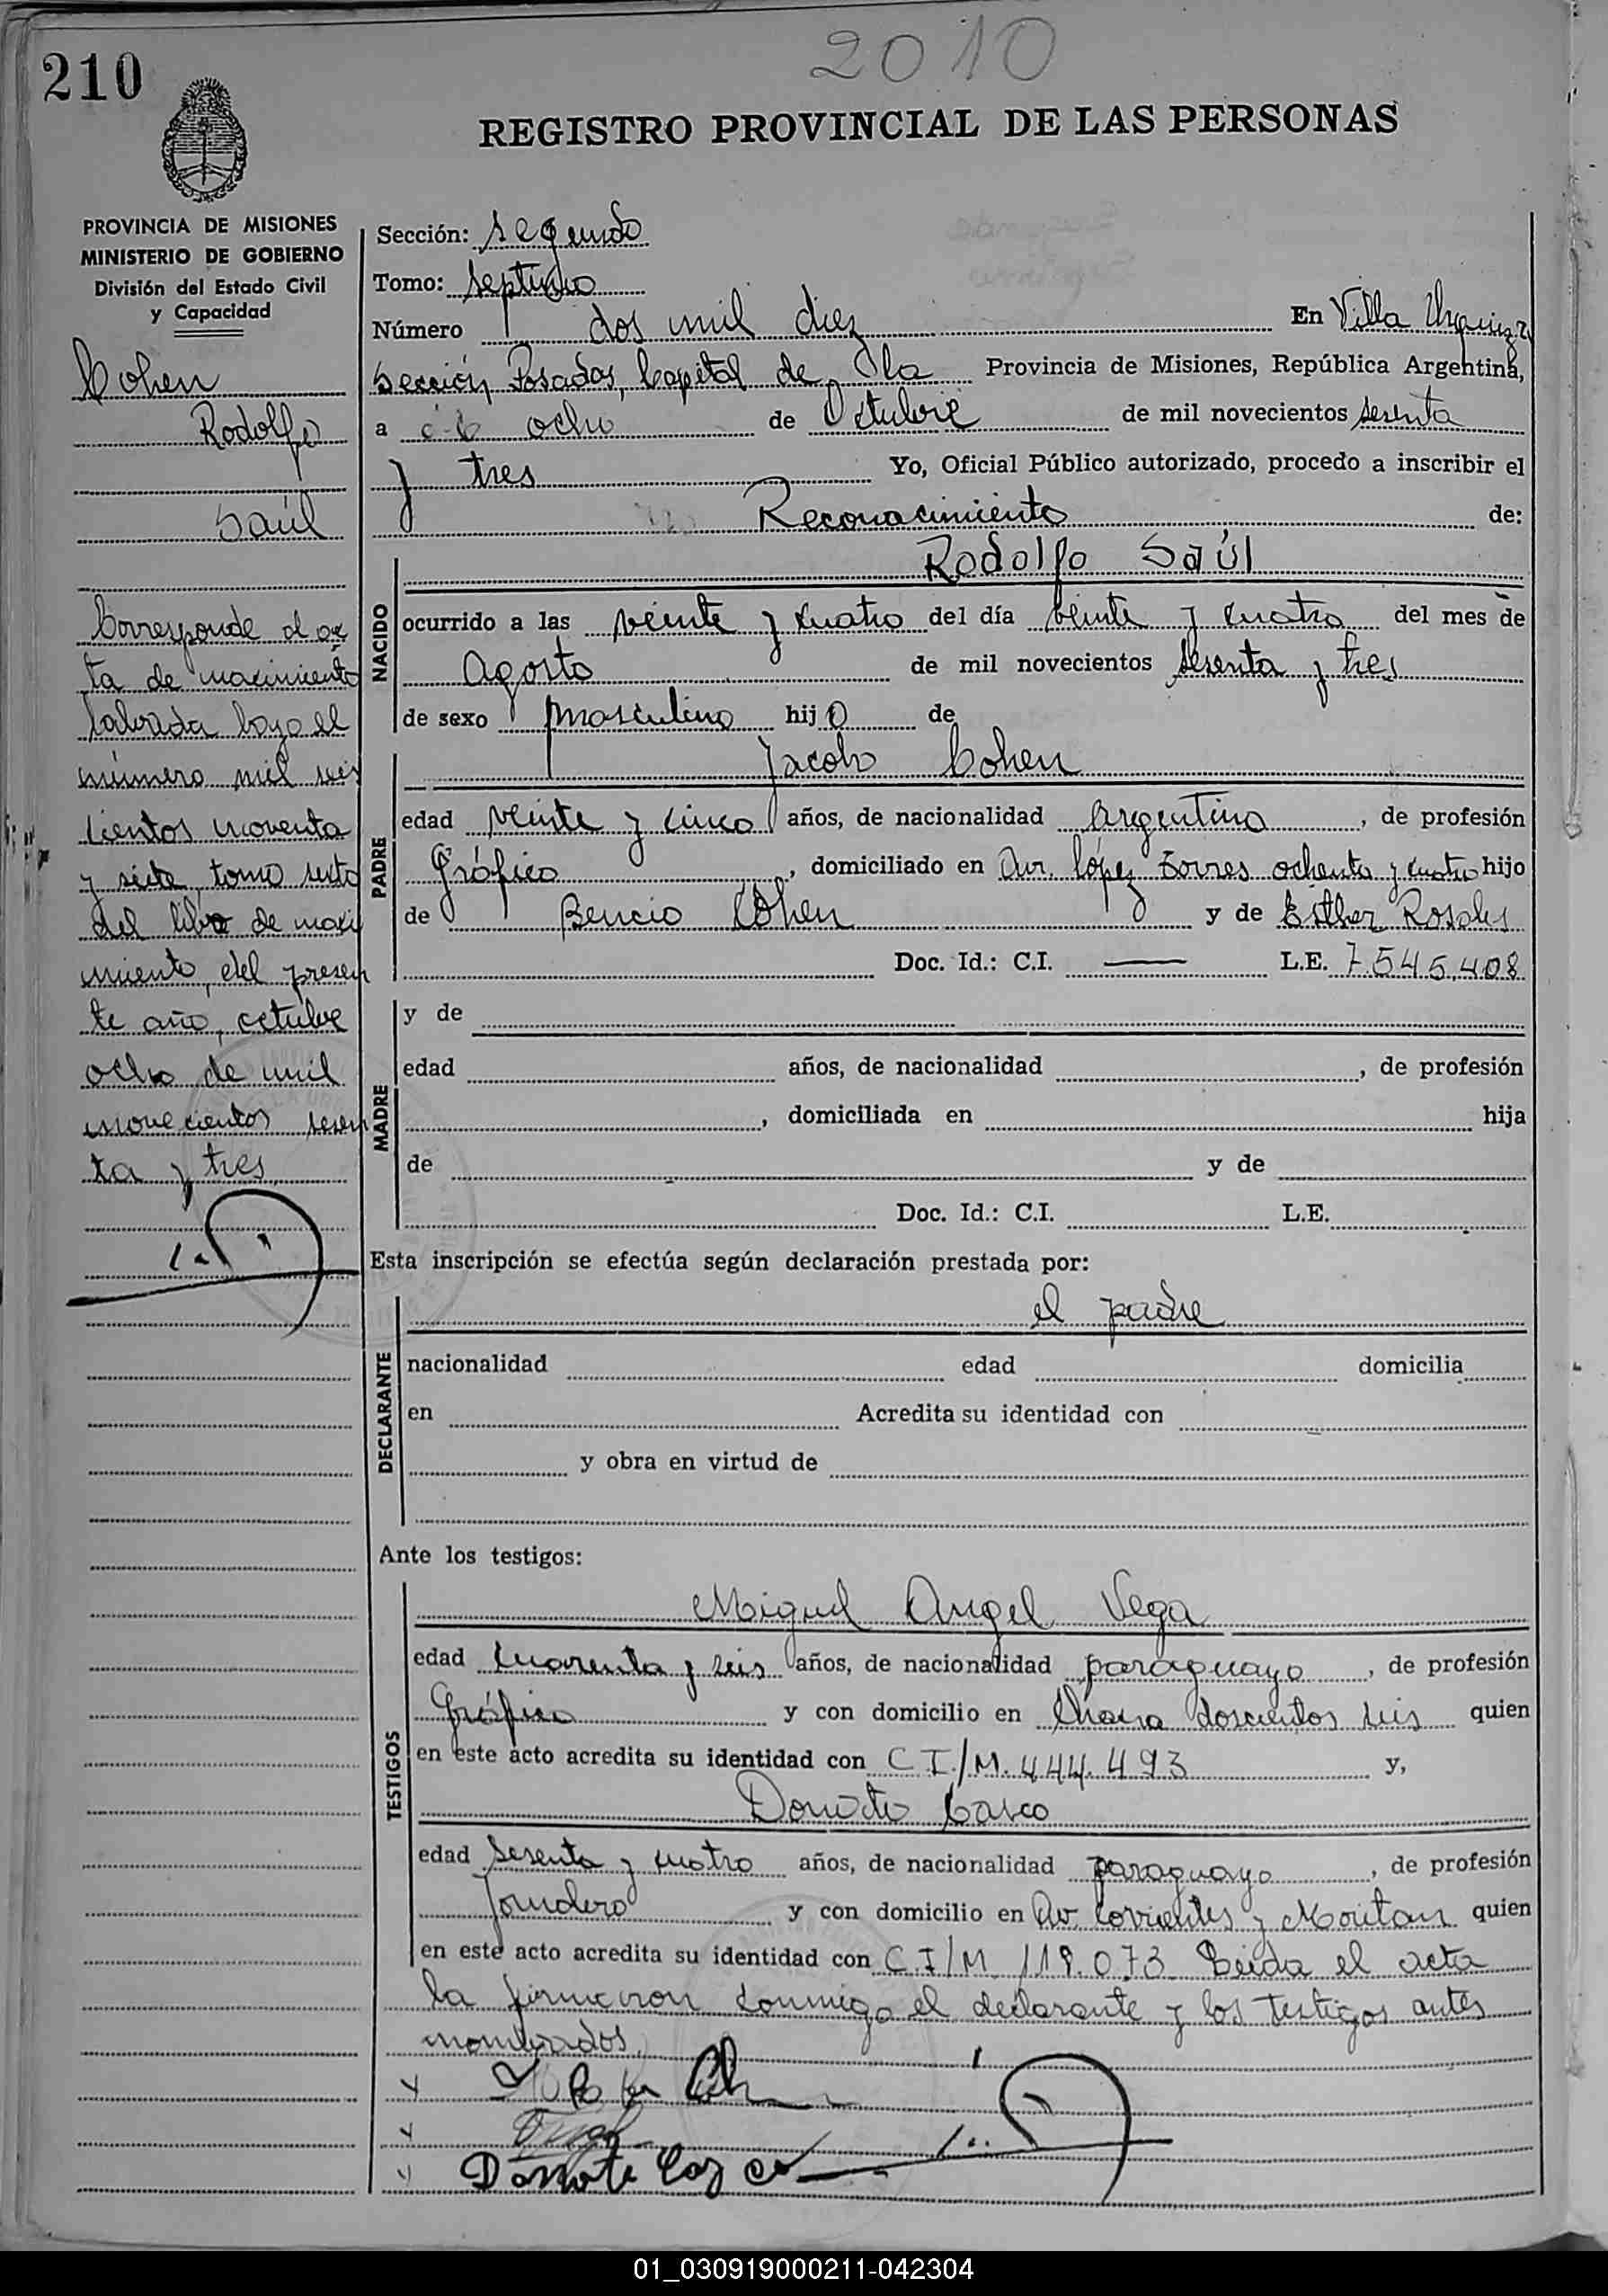 210
2010
REGISTRO PROVINCIAL DE LAS PERSONAS
PROVINCIA DE MISIONES
MINISTERIO DE GOBIERNO
División del Estado Civil
y Capacidad
Cohen
Rodolfo
Saúl
Corresponde al ac
ta de nacimiento
labrada bajo el
número mil seis
cientos noventa
y siete, tomo sexto
del libro de naci
miento, del presen
te año, octubre
ocho de mil
novecientos sesen
ta y tres
Sección: segundo
Tomo: septimo
Número dos mil diez En Villa Urquiza
Sección Posadas, Capital de la Provincia de Misiones, República Argentina,
a ocho de Octubre de mil novecientos sesenta
y tres Yo, Oficial Público autorizado, procedo a inscribir el
Reconocimiento de:
Rodolfo Saúl
NACIDO
ocurrido a las veinte y cuatro del día veinte y cuatro del mes de
Agosto de mil novecientos sesenta y tres
de sexo masculino hijo de
Jacobo Cohen
PADRE
edad veinte y cinco años, de nacionalidad Argentino, de profesión
Gráfico, domiciliado en Av. López Torres ochenta y cuatro hijo
de Bencio Cohen y de Esther Rosales
Doc. Id.: C.I. —— L.E. 7.545.408
MADRE
y de
edad años, de nacionalidad , de profesión
, domiciliada en hija
de y de
Doc. Id.: C.I. L.E.
Esta inscripción se efectúa según declaración prestada por:
el padre
DECLARANTE
nacionalidad edad domicilia
en Acredita su identidad con
y obra en virtud de
Ante los testigos:
Miguel Angel Vega
TESTIGOS
edad cuarenta y seis años, de nacionalidad paraguayo, de profesión
Gráfico y con domicilio en doscientos seis quien
en este acto acredita su identidad con C I/M. 444.493 y,
Donato Casco
edad sesenta y cuatro años, de nacionalidad paraguayo, de profesión
y con domicilio en Av Corrientes y quien
en este acto acredita su identidad con C.I/M 118.073 Leida el acta
la firmaron conmigo el declarante y los testigos antes
nombrados
Donato Casco
01_030919000211-042304